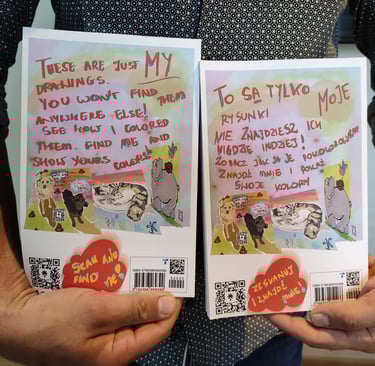 THESE ARE JUST MY
DRAWINGS.
YOU WON'T FIND THEM
ANYWHERE ELSE!
SEE HOW I COLORED
THEM. FIND ME AND
SHOW YOURS COLORS!
SCAN AND
FIND ME!
TO SĄ TYLKO MOJE
RYSUNKI
NIE ZNAJDZIESZ ICH
NIGDZIE INDZIEJ!
ZOBACZ JAK JA JE POKOLOROWAŁAM
ZNAJDŹ MNIE I POKAŻ
SWOJE KOLORY
ZESKANUJ
I ZNAJDŹ
MNIE!